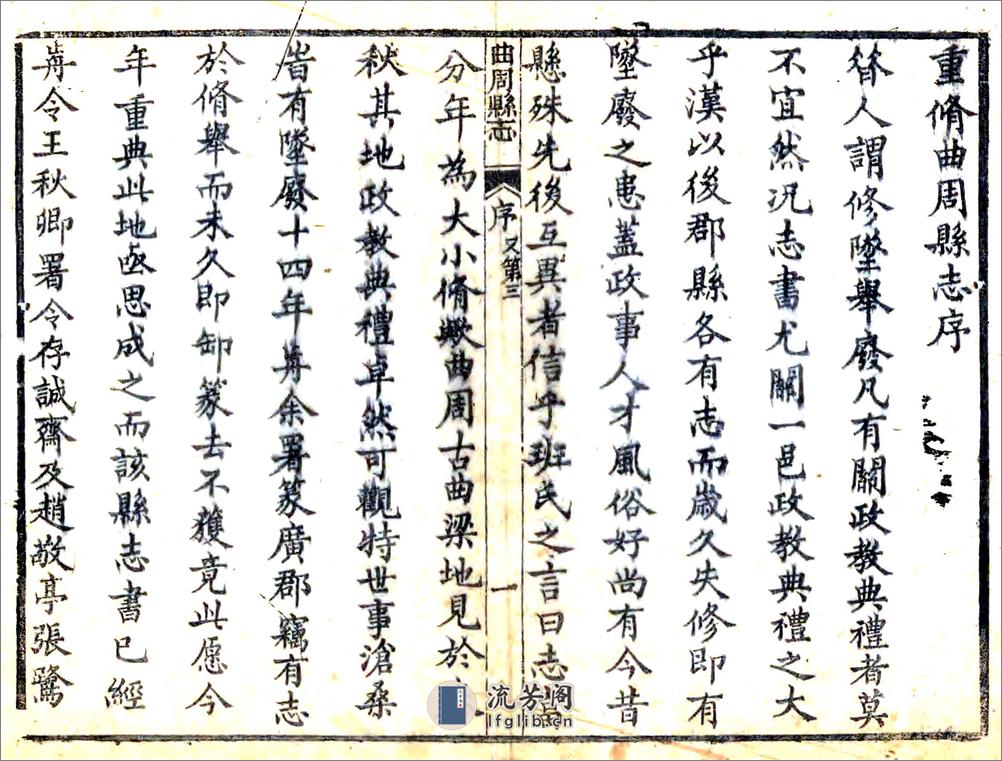 重脩曲周縣志序
簮人謂修墜舉廢凡有關政教典禮者莫
不宜然況志書尤關一邑政教典禮之大
乎漢以後郡縣各有志而歲久失修即有
墜廢之患蓋政事人才風俗好尚有今昔
懸殊先後互異者信乎班氏之言曰志
曲周縣志
序
又第三
一
分年為大小脩歟曲周古曲梁地見於
秋其地政教典禮卓然可觀特世事滄桑
旹有墜廢十四年余署篆廣郡竊有志
於脩舉而未久即卸篆去不獲竟此愿今
年重典此地亟思成之而該縣志書已經
令王秋卿署令存誠齋及趙敬亭張鷺
流芳阁
lfglib.cn